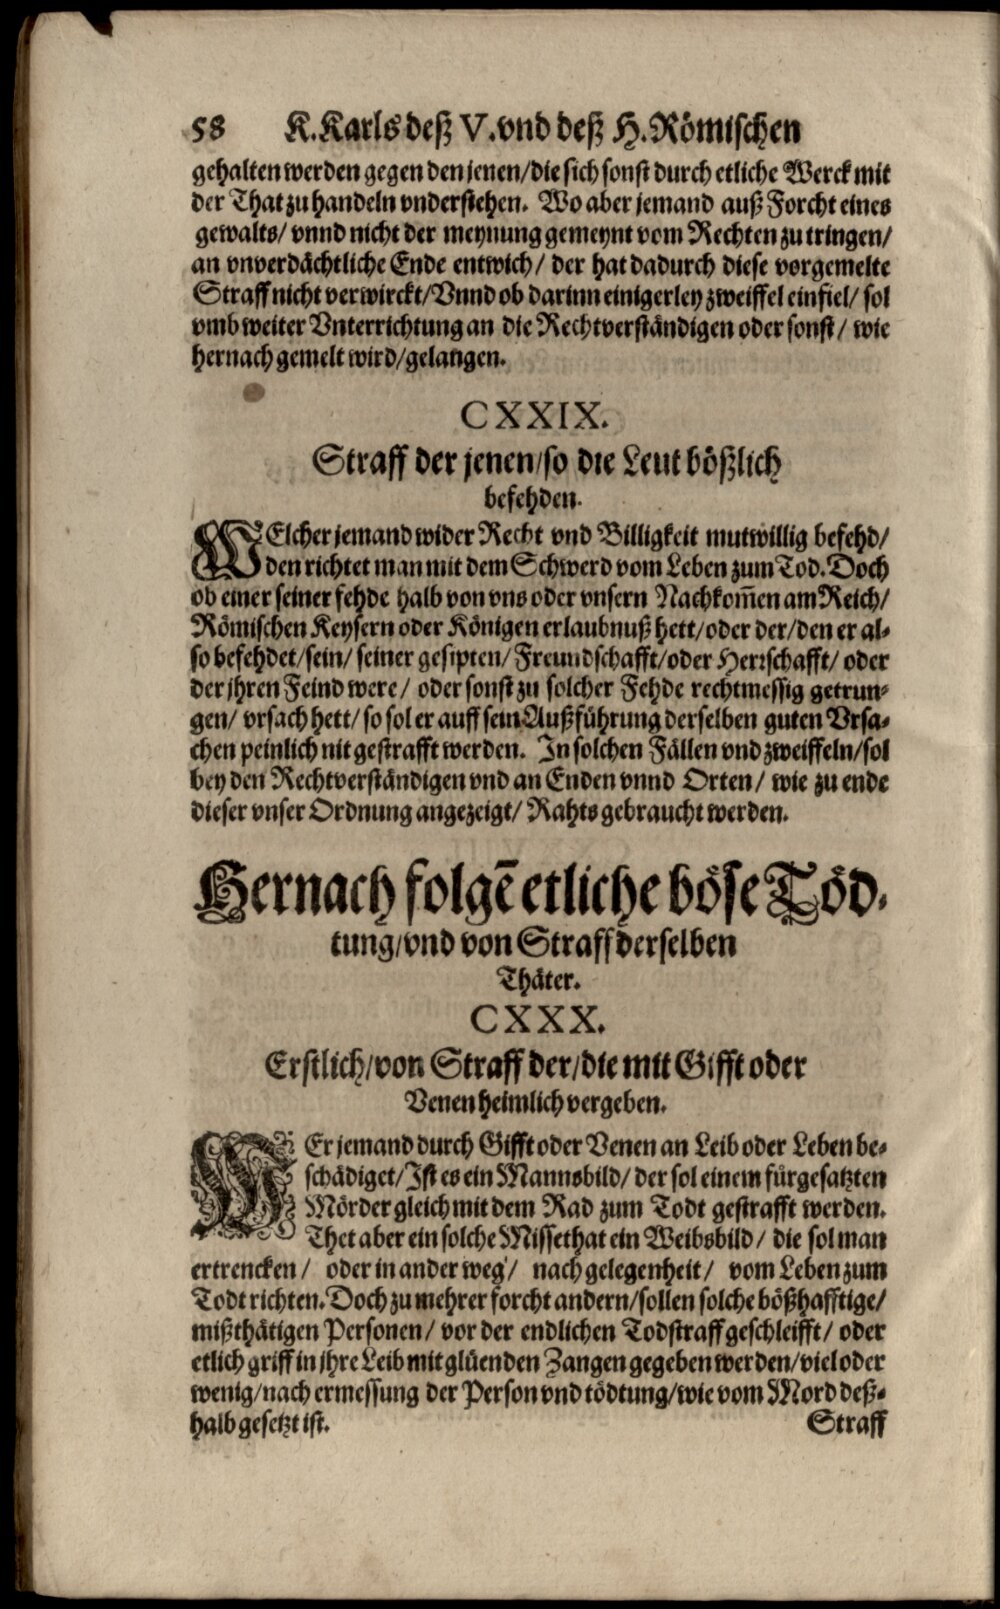 58 K. Karls deß V. vnd deß H. Römischen
gehalten werden gegen den jenen/ die sich sonst durch etliche Werck mit
der That zu handeln vnderstehen. Wo aber jemand auß Forcht eines
gewalts/ vnnd nicht der meynung gemeynt vom Rechten zu tringen/
an vnverdächtliche Ende entwich/ der hat dadurch diese vorgemelte
Straff nicht verwirckt/ Vnnd ob darinn einigerley zweiffel einfiel/ sol
vmb weiter Vnterrichtung an die Rechtverständigen oder sonst/ wie
hernach gemelt wird/ gelangen.
CXXIX.
Straff der jenen/ so die Leut bößlich
befehden.
WElcher jemand wider Recht vnd Billigkeit mutwillig befehd/
den richtet man mit dem Schwerd vom Leben zum Tod. Doch
ob einer seiner fehde halb von vns oder vnsern Nachkom̃en am Reich/
Römischen Keysern oder Königen erlaubnuß hett/ oder der/ den er al-
so befehdet/ sein/ seiner gesipten/ Freundschafft/ oder Herrschafft/ oder
der jhren Feind were/ oder sonst zu solcher Fehde rechtmessig getrun-
gen/ vrsach hett/ so sol er auff sein Außführung derselben guten Vrsa-
chen peinlich nit gestrafft werden. In solchen Fällen vnd zweiffeln/ sol
bey den Rechtverständigen vnd an Enden vnnd Orten/ wie zu ende
dieser vnser Ordnung angezeigt/ Rahts gebraucht werden.
Hernach folgē etliche böse Töd-
tung/ vnd von Straff derselben
Thäter.
CXXX.
Erstlich/ von Straff der/ die mit Gifft oder
Venen heimlich vergeben.
WEr jemand durch Gifft oder Venen an Leib oder Leben be-
schädiget/ Ist es ein Mannsbild/ der sol einem fürgesatzten
Mörder gleich mit dem Rad zum Todt gestrafft werden.
Thet aber ein solche Missethat ein Weibsbild/ die sol man
ertrencken/ oder in ander weg/ nach gelegenheit/ vom Leben zum
Todt richten. Doch zu mehrer forcht andern/ sollen solche bößhafftige/
mißthätigen Personen/ vor der endlichen Todstraff geschleifft/ oder
etlich griff in jhre Leib mit glüenden Zangen gegeben werden/ viel oder
wenig/ nach ermessung der Person vnd tödtung/ wie vom Mord deß-
halb gesetzt ist.
Straff